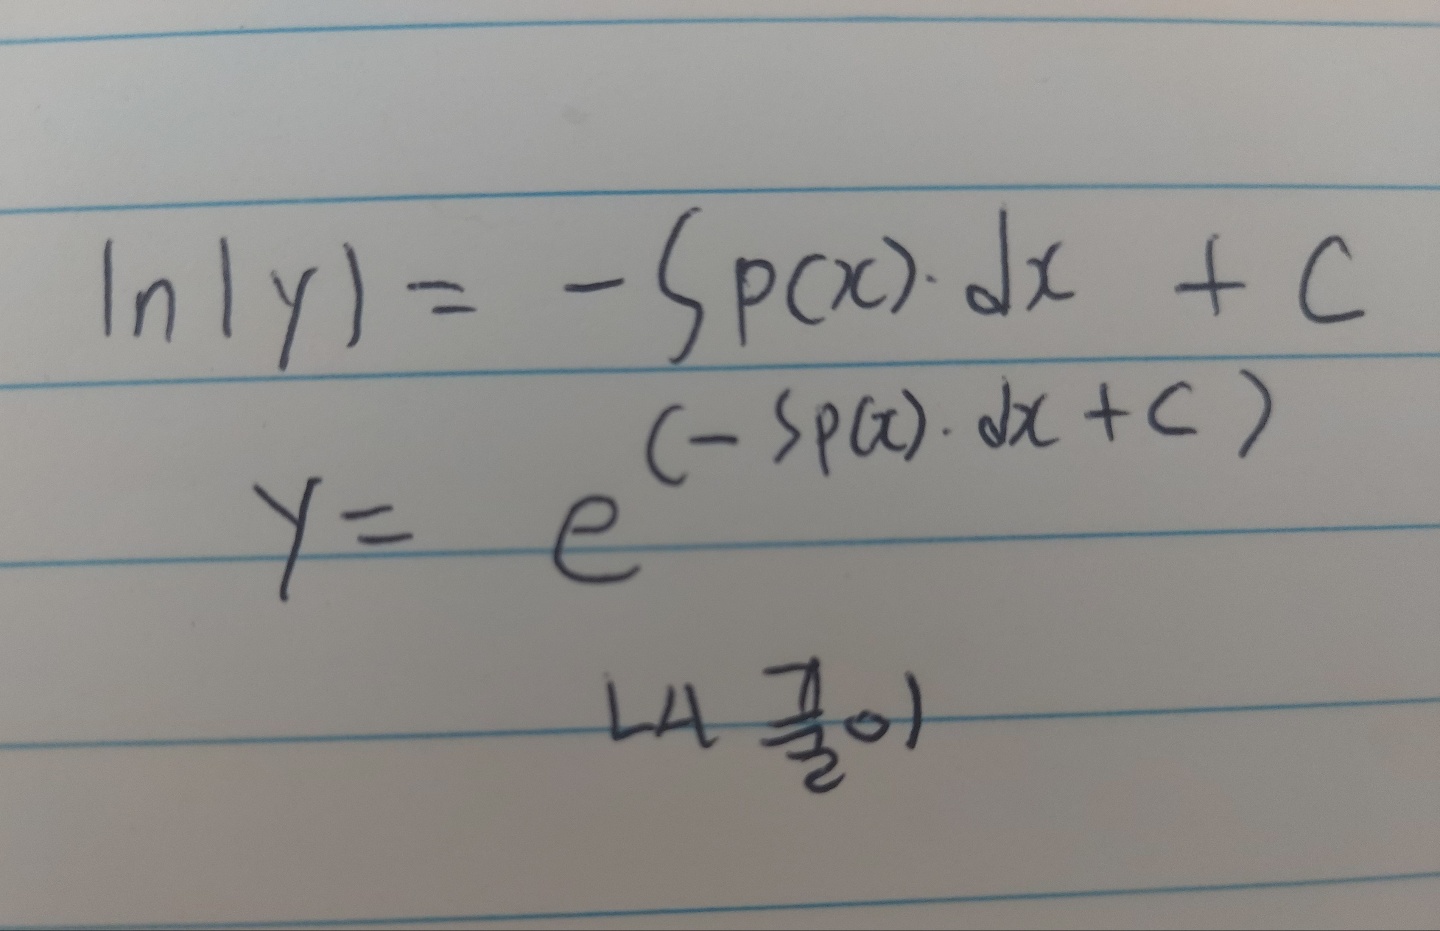 ln|y| = -∫p(x)·dx + C
y = e^(-∫p(x)·dx+C)
내 풀이